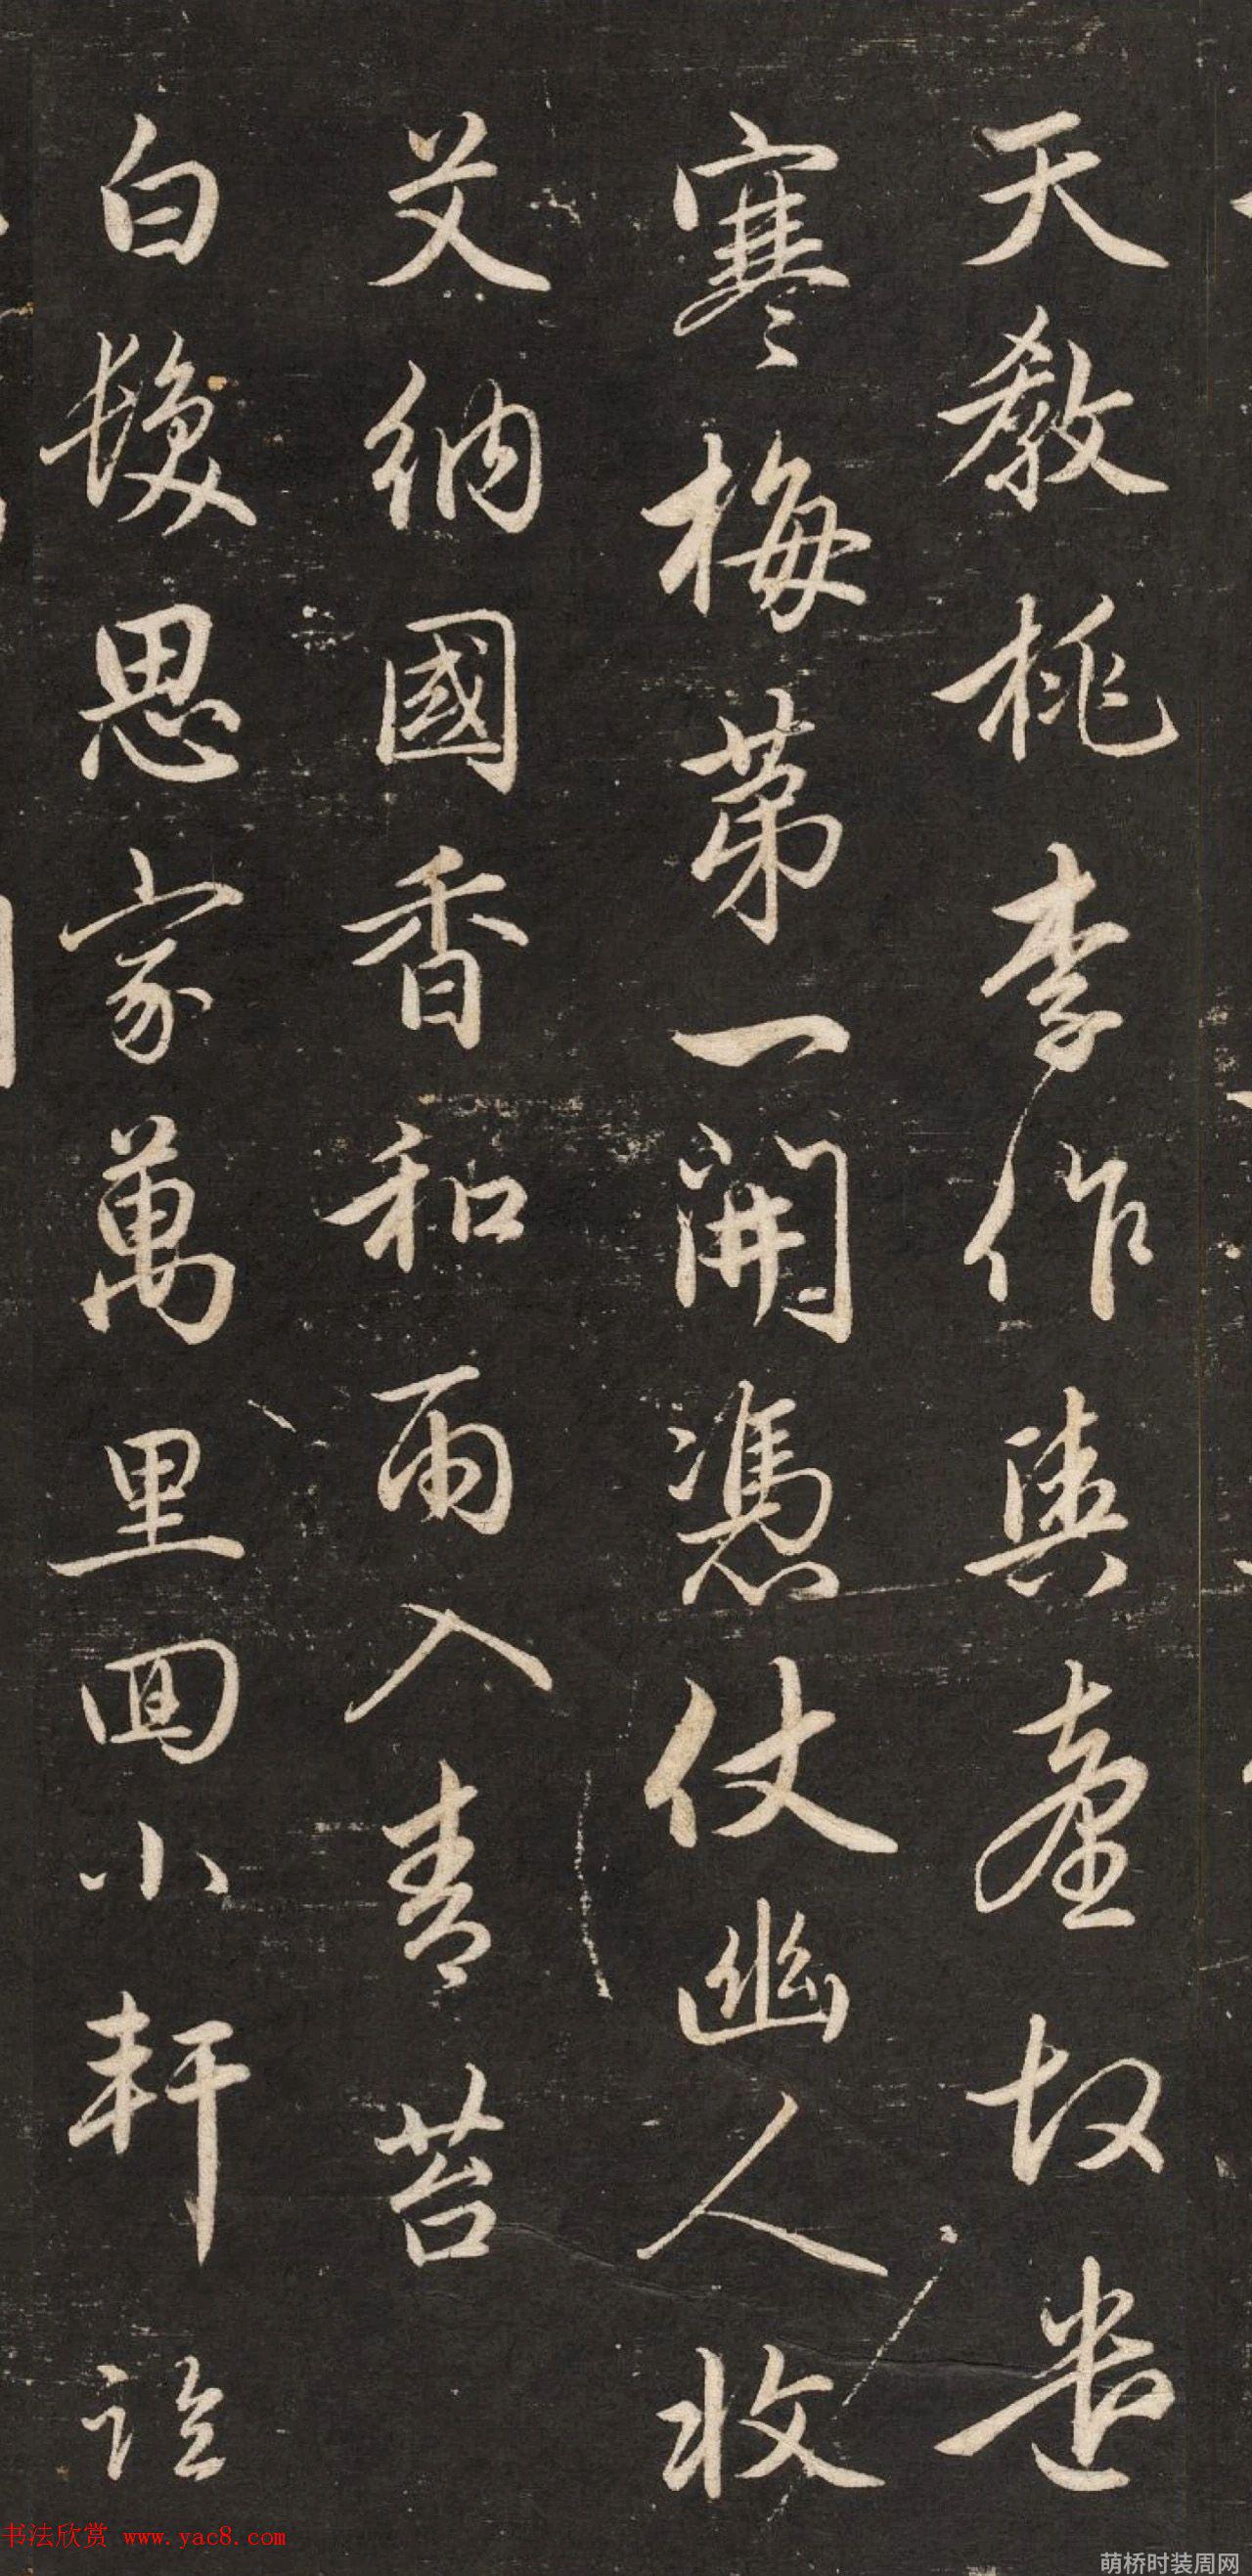 天教桃李作輿臺故遣
寒梅苐一開憑仗幽人收
艾納國香和雨入青苔
白髮思家萬里回小軒
书法欣赏 www.yac8.com
萌桥时装周网